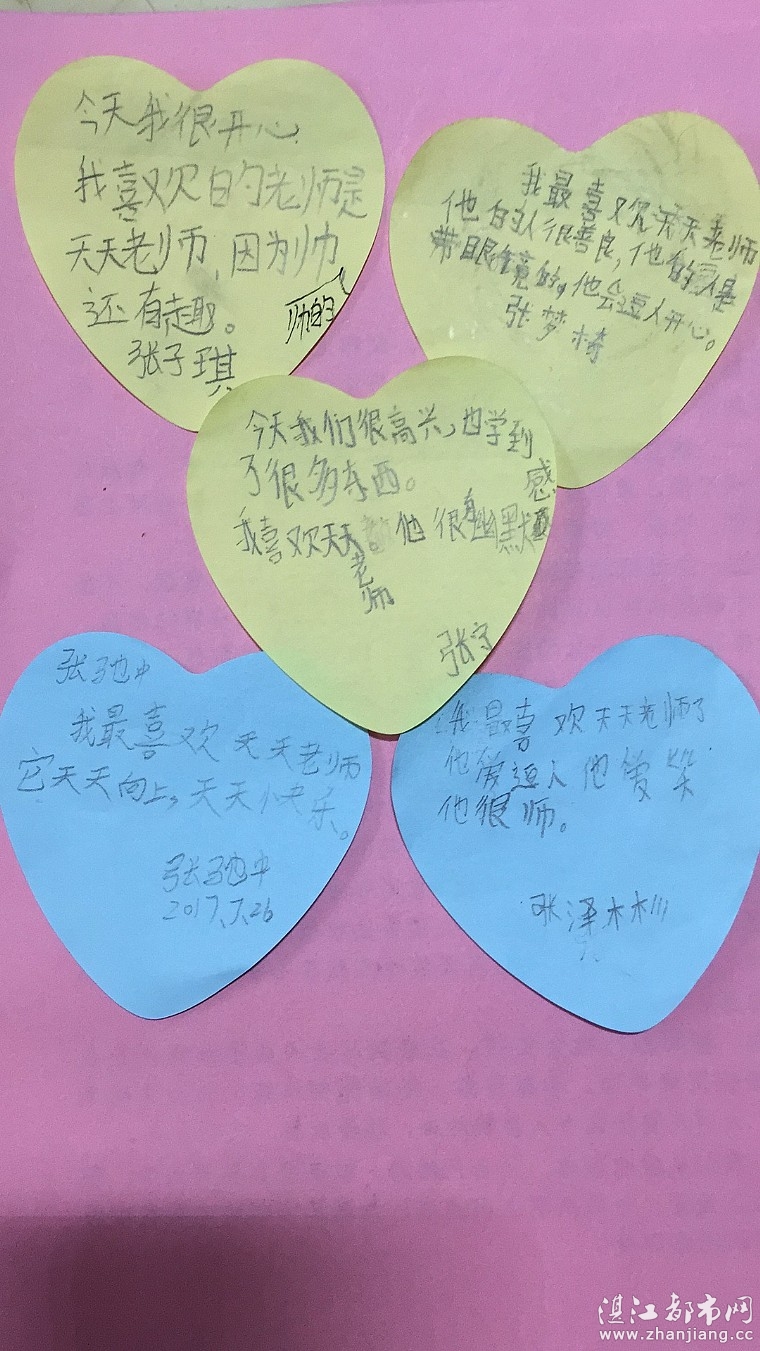 今天我很开心.
我喜欢白的老师是
天天老师,因为帅
还有趣。
帅的
张子琪
我最喜欢天天老师
他的人很善良,他的是
带眼镜的,他会逗人开心。
张梦琦
今天我们很高兴,也学到
了很多东西。
我喜欢天天老师。他很有幽默感
张宁
张弛中
我最喜欢天天老师
它天天向上,天天快乐。
张弛中
2017.7.26
我最喜欢天天老师了
他爱逗人他爱笑
他很师。
张泽彬
湛江都市网
www.zhanjiang.cc